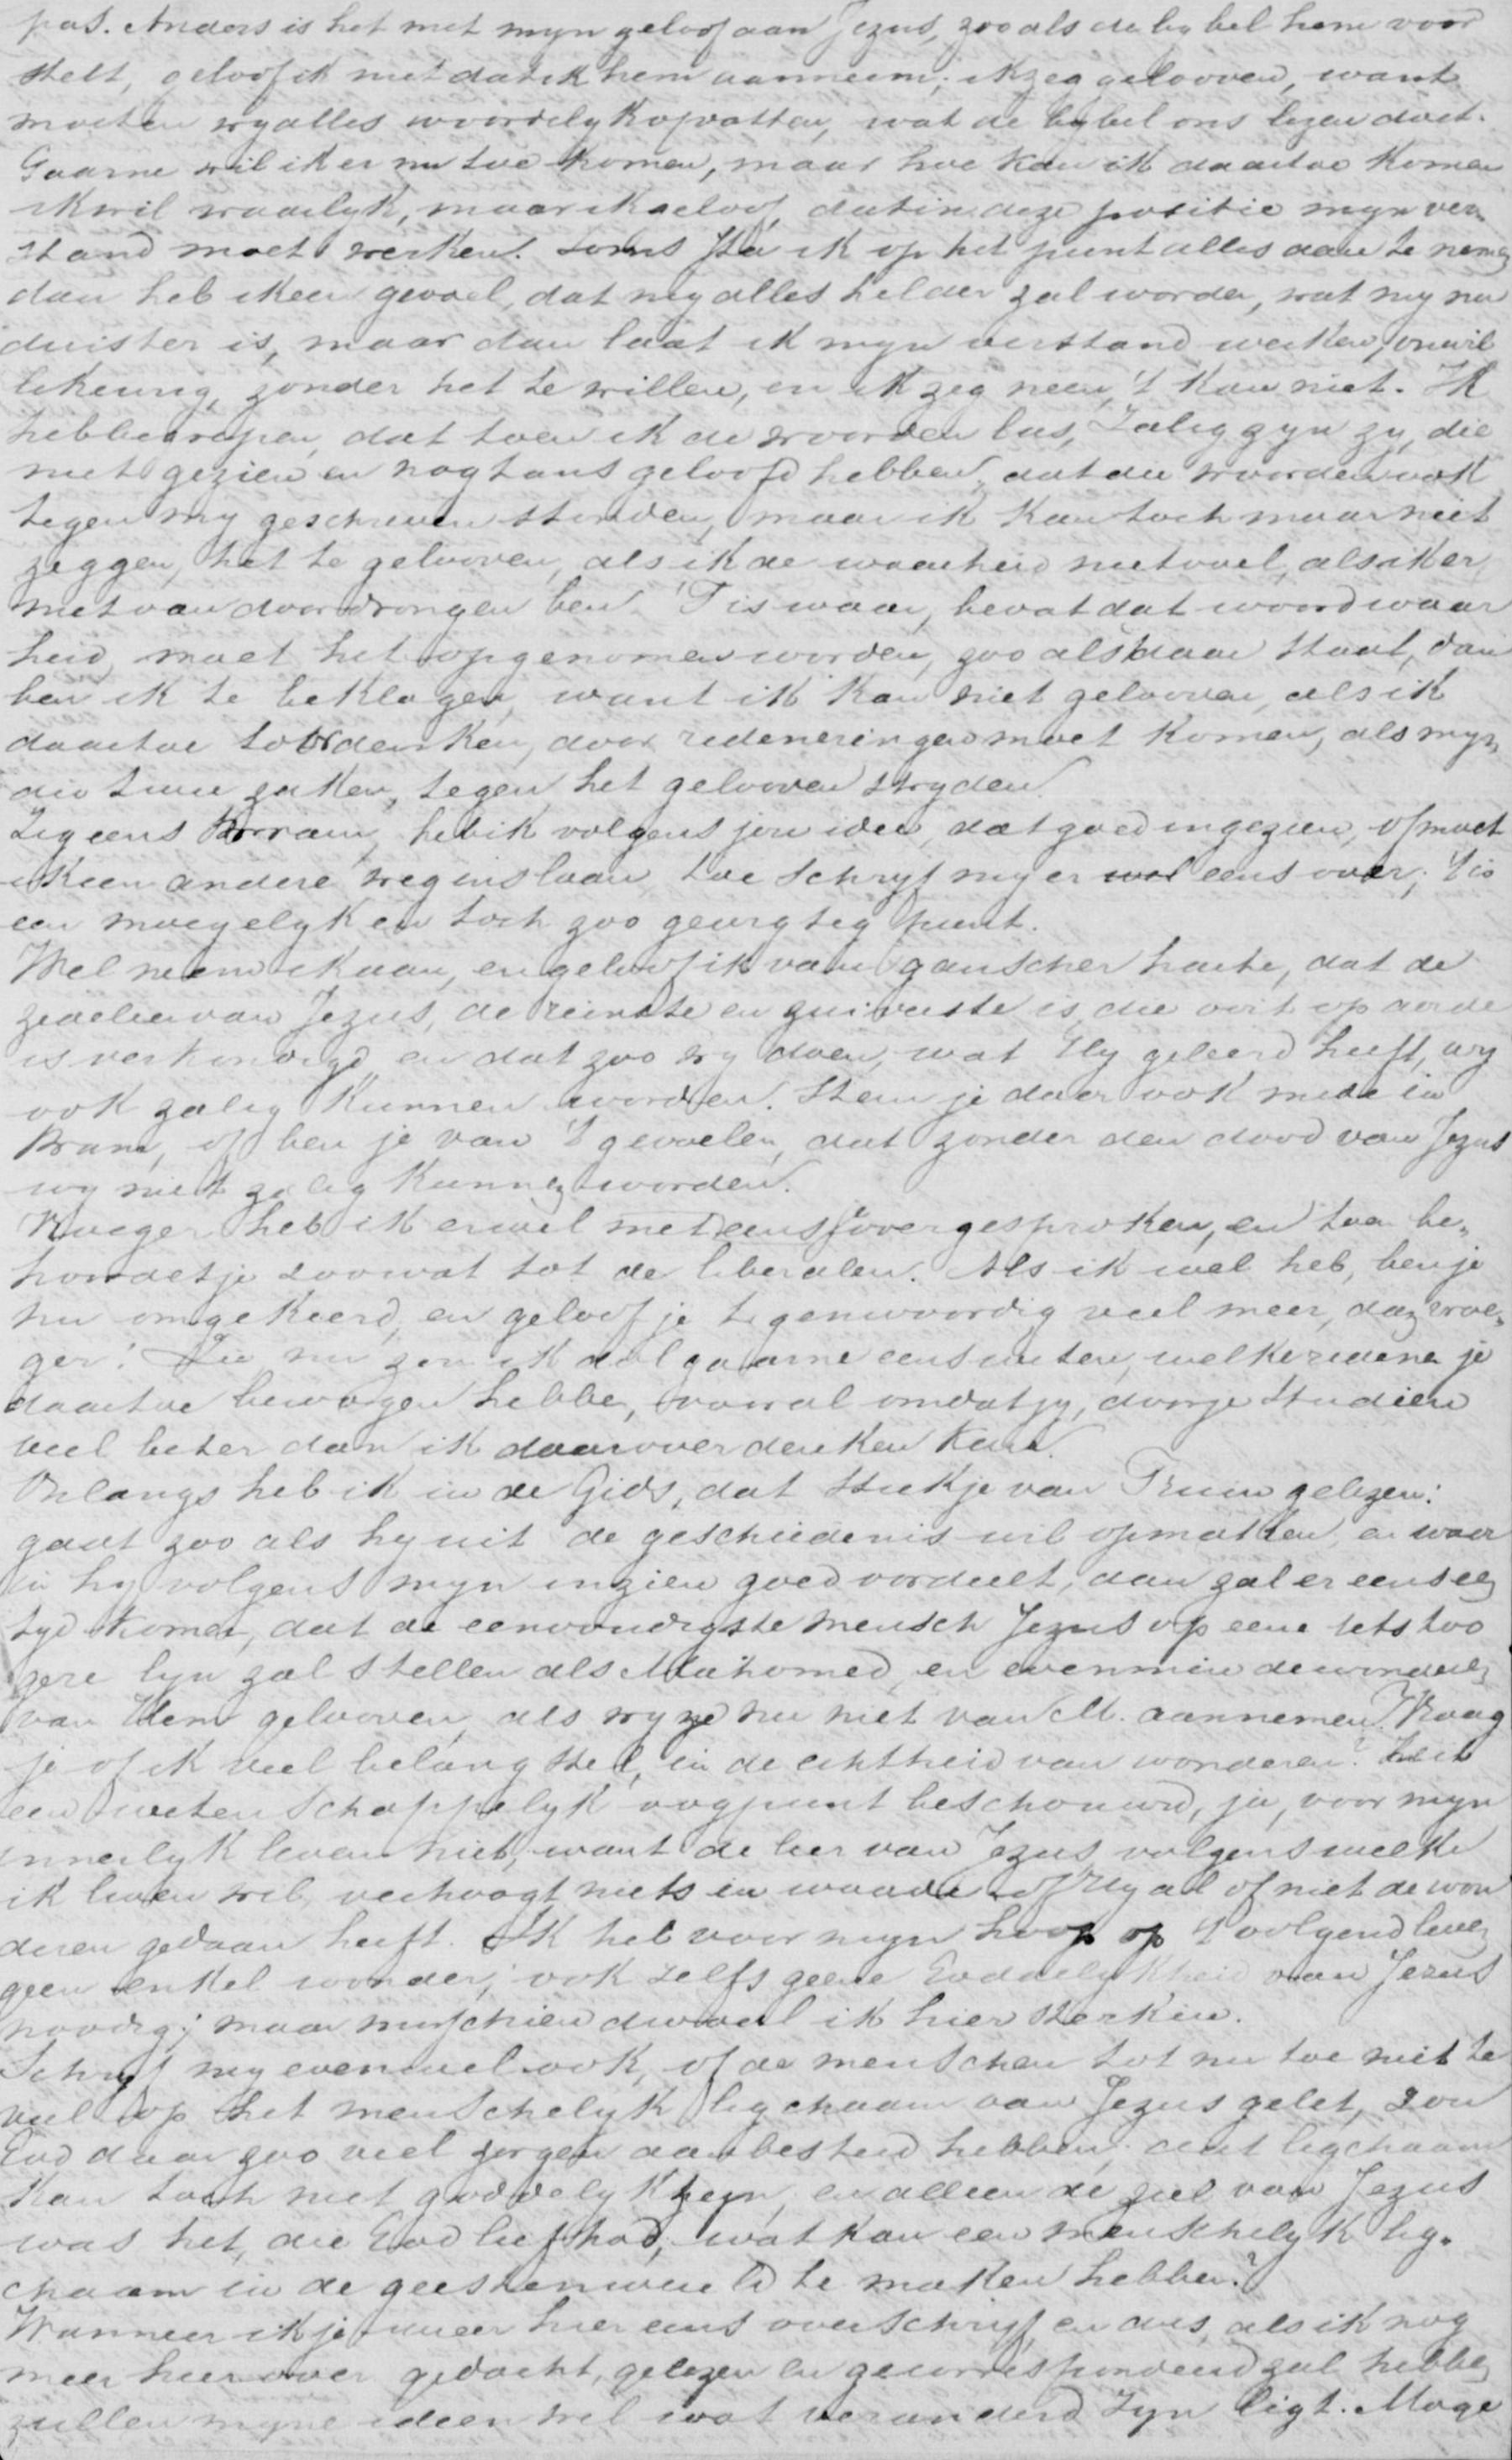 pas. Anders is het met myn geloof aan Jezus, zoo als de bybel hem voor
stelt, geloof ik niet dat ik hem aanneem; ik zeg gelooven, want
moeten wy alles woordelyk opvatten, wat de bybel ons lezen doet.
Gaarne wil ik er nu toe komen, maar hoe kan ik daartoe komen
ik wil waarlyk, maar ik geloof, dat in deze positie myn ver„
stand moet werken. Soms sta ik op het punt alles aan te nemen
dan heb ik een gevoel, dat my alles helder zal worden, wat my nu
duister is, maar dan laat ik myn verstand werken, onwil
lekeurig, zonder het te willen, en ik zeg neen, 't kan niet. Ik
heb begrepen, dat toen ik de woorden las, Zalig zyn zy, die
niet gezien en nogtans geloofd hebben„ dat die woorden ook
tegen my geschreven stonden, maar ik kan toch maar niet
zeggen, het te gelooven, als ik de waarheid niet voel, als ik er
niet van doordrongen ben. 'T is waar, bevat dat woord waar
heid, moet het opgenomen worden, zoo als daar staat, dan
ben ik te beklagen, want ik kan niet gelooven, als ik
daartoe door denken, door redeneringen moet komen, als myn
die twee zaken, tegen het gelooven stryden.
Zeg eens Bram, heb ik volgens jou idee, dat goed ingezien, of moet
ik een andere weg inslaan, toe schryf my er wel eens over; 't is
een moeyelyk en toch zoo gewigtig punt.
Wel neem ik aan, en geloof ik van ganscher harte, dat de
zedeleer van Jezus, de reinste en zuiverste is, die ooit op aarde
is verkondigd, en dat zoo wy doen, wat Hy geleerd heeft, wy
ook zalig kunnen worden. Stem je daar ook mede in
Bram, of ben je van 't gevoelen, dat zonder den dood van Jezus
wy niet zalig kunnen worden.
Vroeger heb ik er wel met eens over gesproken, en toen be„
hoordet je zoowat tot de liberalen. Als ik wel heb, ben je
nu omgekeerd, en geloof je tegenwoordig veel meer, dan vroe„
ger! Zie nu zou ik dol gaarne eens weten, welke redenen je
daartoe bewogen hebben, vooral omdat jy, door je studien
veel beter dan ik daarover denken kan.
Onlangs heb ik in de Gids, dat stukje van Fruin gelezen:
gaat zoo als hy uit de geschiedenis wil opmaken, en waar
in hy volgens myn inzien goed oordeelt, dan zal er eens een
tyd komen, dat de eenvoudigste mensch Jezus op eene iets hoo
gere lyn zal stellen als Mahomed, en evenmin de wonderen
van Hem gelooven, als wy ze nu niet van M. aannemen. Vraag
je of ik veel belang stel, in de echtheid van wonderen? Uit
een wetenschappelyk oogpunt beschouwd, ja, voor myn
innerlyk leven niet, want de leer van Jezus volgens welke
ik leven wil, verhoogt niets in waarde of Hy al of niet de won
deren gedaan heeft. Ik heb voor myn hoop op 't volgend leven
geen enkel wonder; ook zelfs geene Goddelykheid van Jezus
noodig; maar misschien dwaal ik hier sterk in.
Schryf my evenwel ook, of de menschen tot nu toe niet te
veel op het menschelyk ligchaam van Jezus gelet, zou
God daar zoo veel zorgen aan besteed hebben; dat ligchaam
kan toch niet goddelyk zyn, en alleen de ziel van Jezus
was het, die God lief had; wat kan een menschelyk lig„
chaam in de geestenwereld te maken hebben?
Wanneer ik je weer hier eens over schryf, en dus, als ik nog
meer hier over gedacht, gelezen en gecorrespondeerd zal hebben
zullen myne ideen wel wat veranderd zyn ligt. Moge